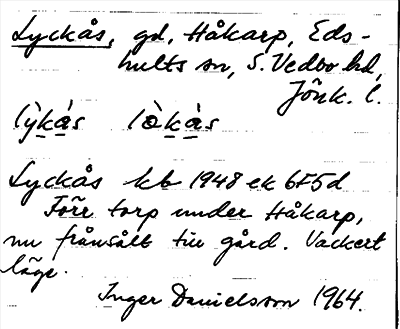 Lyckås, gd, Håkarp, Eds-
hults sn, S. Vedbo hd,
Jönk. l.
lỳkås lòkås
Lyckås kb 1948 ek 6F5d
Förr torp under Håkarp,
nu frånsålt till gård. Vackert
läge.
Inger Danielsson 1964.